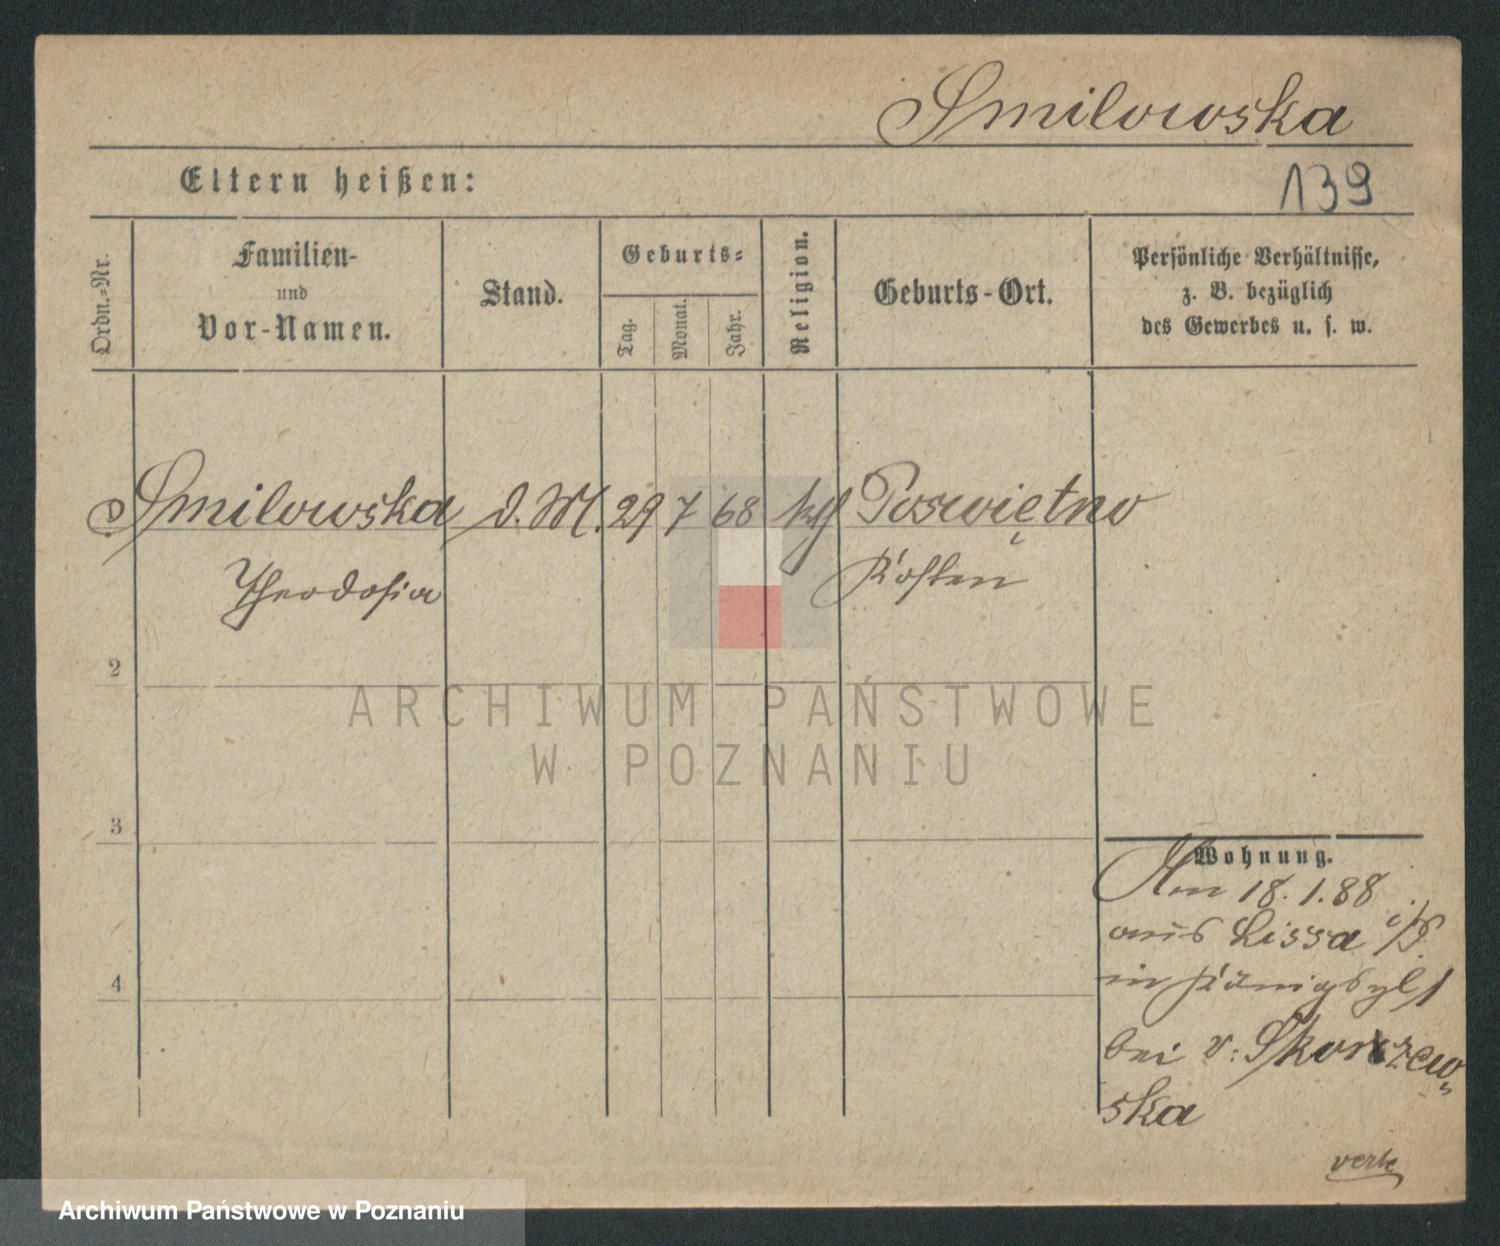 Smilowska
Eltern heißen:
139
Ordn.-Nr.
Familien-
und
Vor-Namen.
Stand.
Geburts-
Tag.
Monat.
Jahr.
Religion.
Geburts-Ort.
Persönliche Verhältnisse,
z. B. bezüglich
des Gewerbes u. s. w.
Smilowska d. M. 29 7 68 kth Poswiętno
Theodosia Kosten
2
3
4
Wohnung.
18.1.88
aus Lissa i/P.
in Königspl 1
bei v. Skorzew-
ska
ARCHIWUM PAŃSTWOWE
W POZNANIU
Archiwum Państwowe w Poznaniu